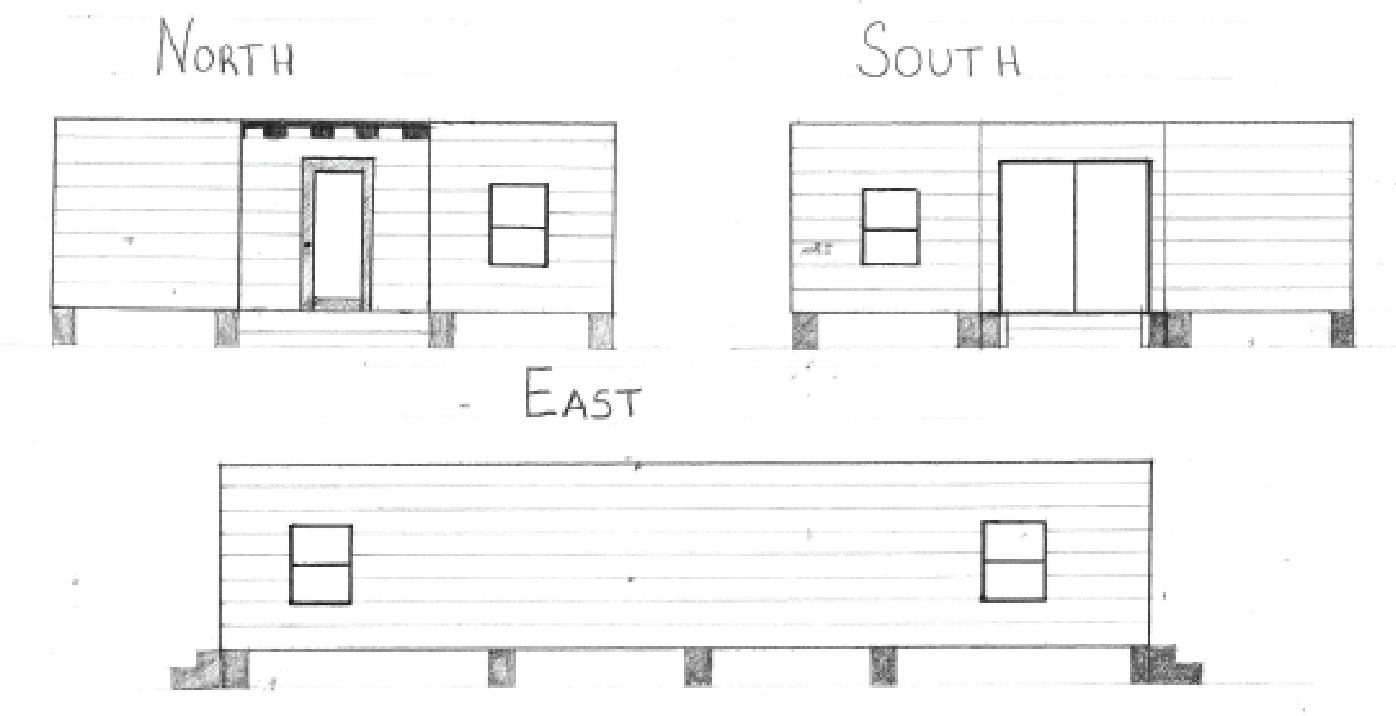 NORTH
SOUTH
EAST